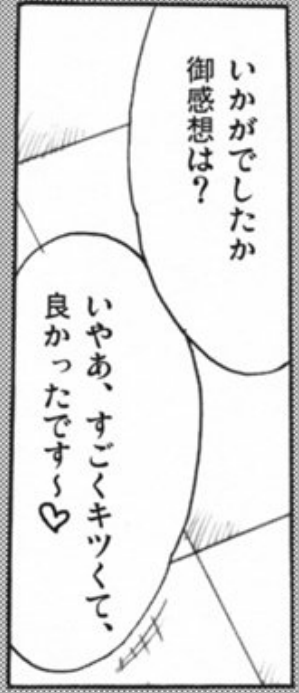 いかがでしたか
御感想は？
いやあ、すごくキツくて、
良かったです～♡